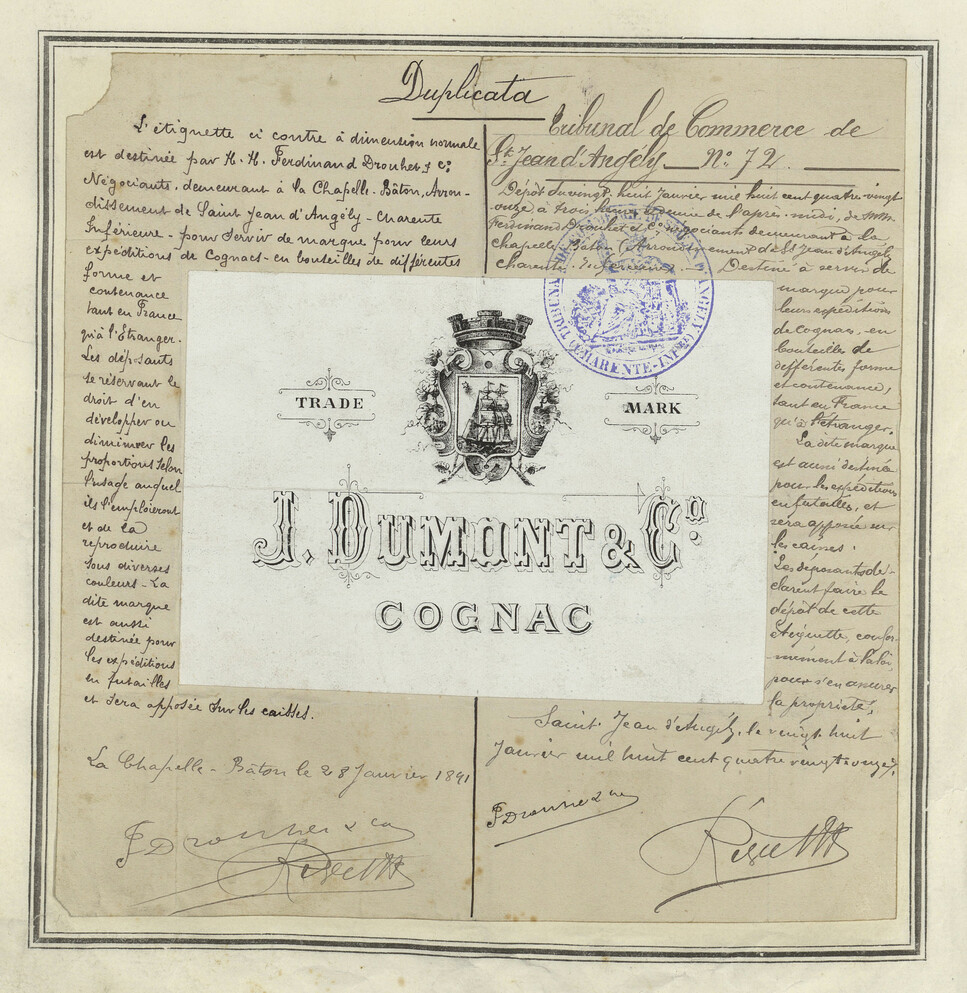 Duplicata
L'étiquette ci contre à dimension normale
est destinée par H. H. Ferdinand Drouhet & Cº
Négociants, demeurant à la Chapelle-Bâton, Arron-
dissement de Saint Jean d'Angély - Charente
Inférieure - pour servir de marque pour leurs
expéditions de Cognacs - en bouteilles de différentes
forme et
contenance
tant en France
qu'à l'Étranger.
Les déposants
se réservant le
droit d'en
développer ou
diminuer les
proportions selon
l'usage auquel
ils l'emploieront
et de la
reproduire
sous diverses
couleurs - La
dite marque
est aussi
destinée pour
les expéditions
en futailles
et sera apposée sur les caisses.
La Chapelle-Bâton le 28 Janvier 1891
F Drouhet & Cie
Tribunal de Commerce de
St. Jean d'Angély Nº 72.
Dépôt du vingt huit Janvier mil huit cent quatre-vingt
onze à trois heures et demie de l'après-midi, de MM
Ferdinand Drouhet et Cº négociant demeurant à la
chapelle Bâton (Arrondissement de St Jean d'Angély
charente-Inférieure - Destiné à servir de
marque pour
leurs expéditions
de cognac, en
bouteilles de
différentes forme
et contenance,
tant en France
qu'à l'étranger.
La dite marque
est aussi destinée
pour les expéditions
en futailles, et
sera apposée sur
les caisses.
Les déposants dé-
clarent faire le
dépôt de cette
étiquette, confor-
mément à la loi
pour s'en assurer
la propriété,
Saint Jean d'Angély, le vingt huit
Janvier mil huit cent quatre vingt onze,
F Drouhet & Cie
TRADE MARK
J. DUMONT & Cº
COGNAC
TRIBUNAL DE COMMERCE DE ST JEAN D'ANGELY
(CHARENTE-INFRE)